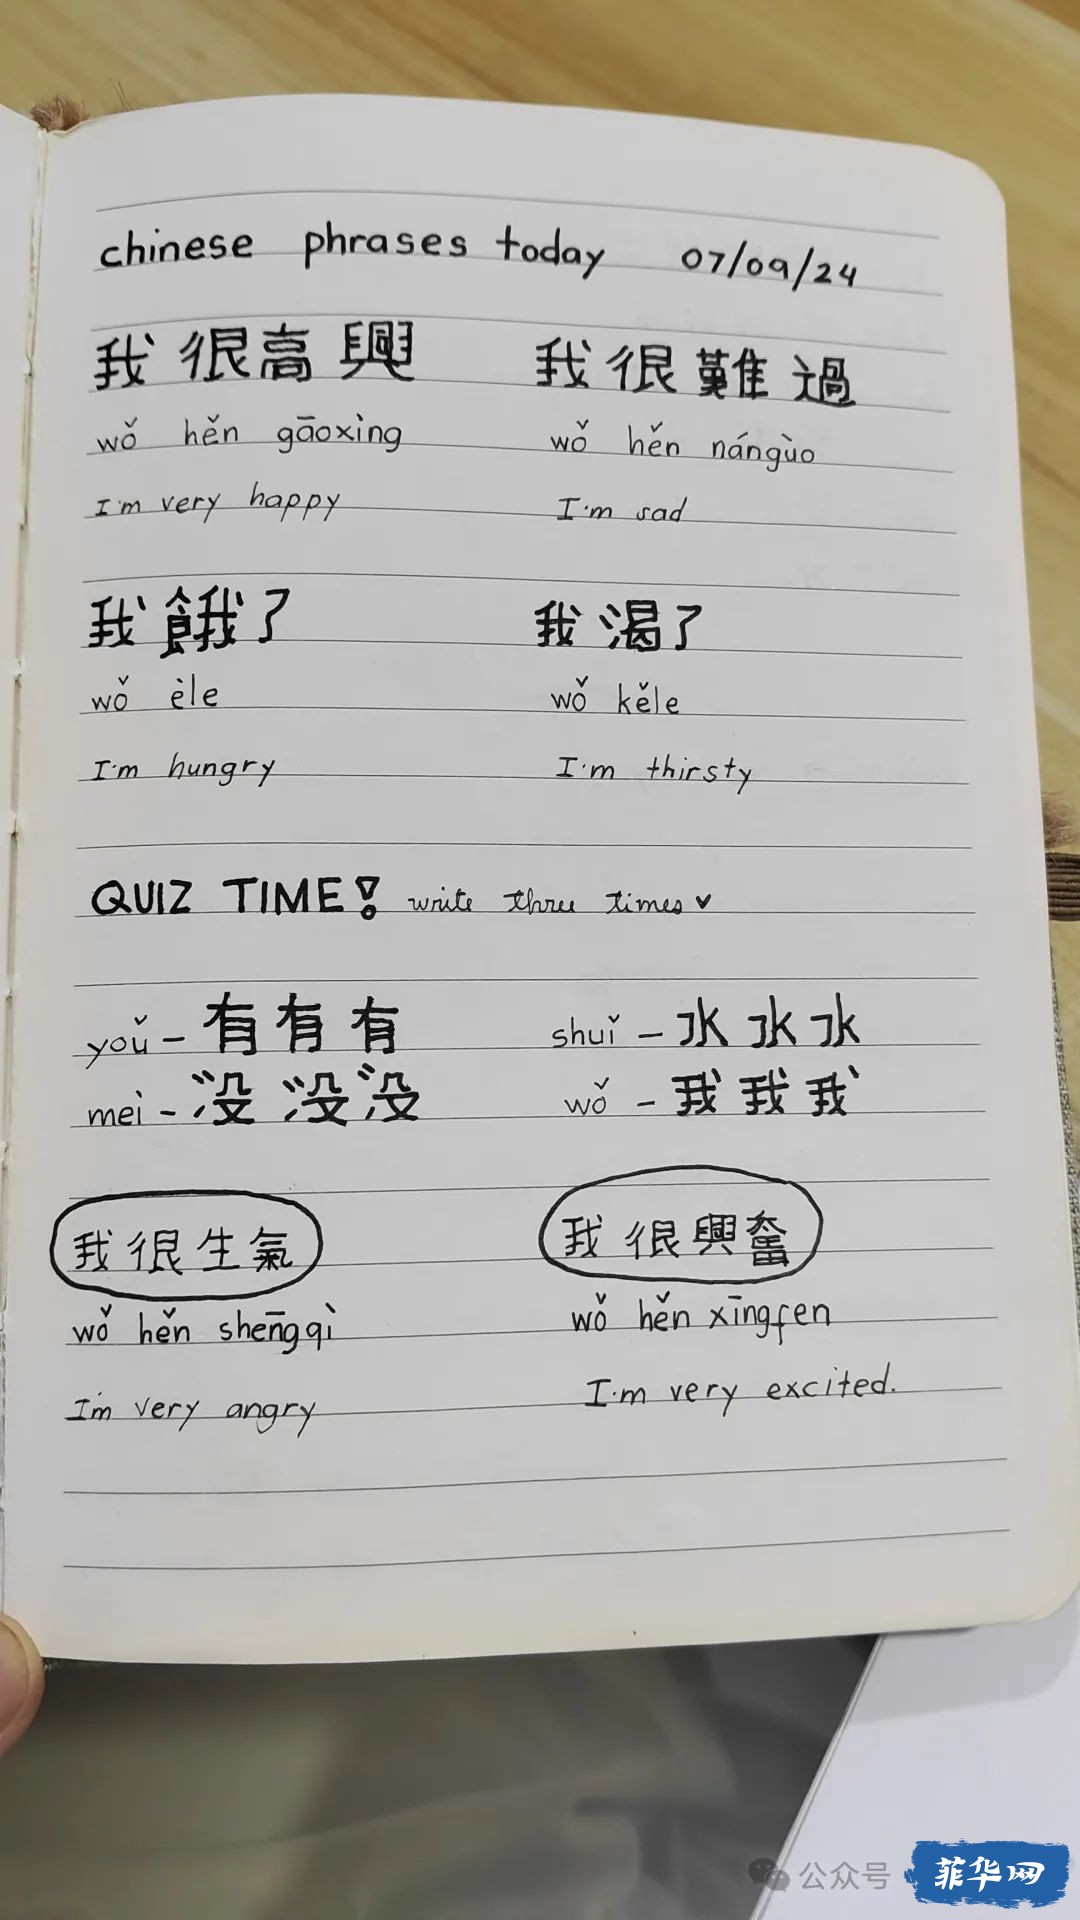 chinese phrases today 07/09/24
我很高興 我很難過
wǒ hěn gāoxìng wǒ hěn nángùo
I'm very happy I'm sad
我餓了 我渴了
wǒ èle wǒ kěle
I'm hungry I'm thirsty
QUIZ TIME! write three times ♥
yoǔ - 有有有 shuǐ - 水水水
meì - 没没没 wǒ - 我我我
我很生氣 我很興奮
wǒ hěn shēngqì wǒ hěn xīngfen
I'm very angry I'm very excited.
公众号 菲华网